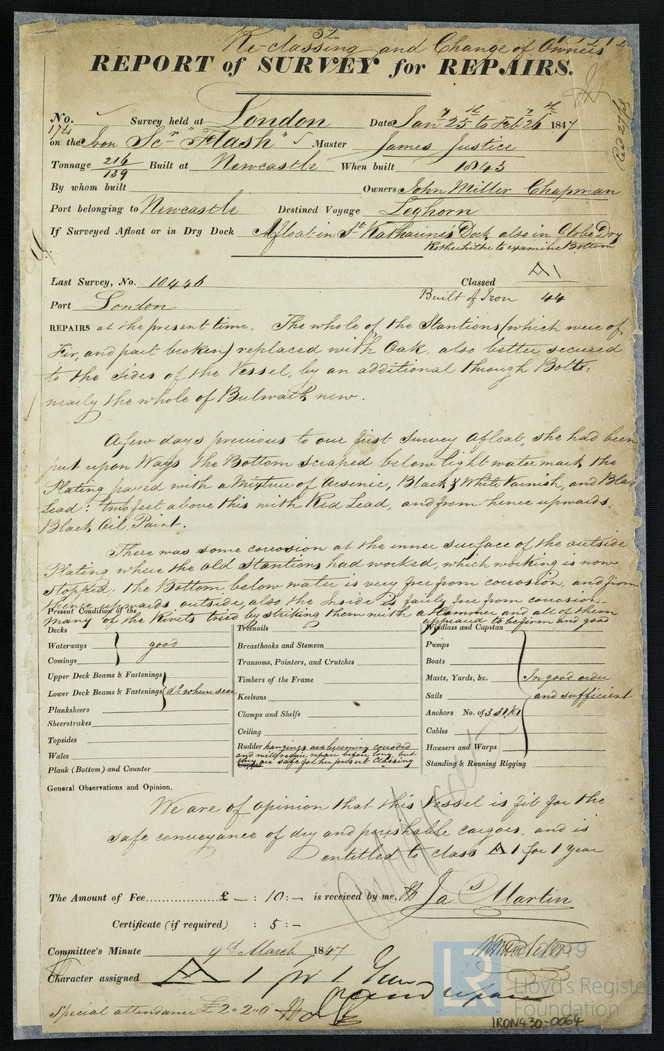 Re-classing and Change of Owners
REPORT of SURVEY for REPAIRS.
No. 174 Survey held at London Date Jany 25th to Feby 26th 1847
on the Iron Scr "Flash" Master James Justice
Tonnage 216/139 Built at Newcastle When built 1843
By whom built Owners John Miller Chapman
Port belonging to Newcastle Destined Voyage Leghorn
If Surveyed Afloat or in Dry Dock Afloat in St Katharine's Dock also in Globe Dry
Rotherhithe to examine Bottom
Last Survey, No. 10446 Classed A1
Port London Built of Iron 44
REPAIRS at the present time. The whole of the Stantions (which were of
Fir, and part broken) replaced with Oak, also better secured
to the sides of the Vessel, by an additional through Bolts,
nearly the whole of Bulwark new.
A few days previous to our first Survey Afloat, she had been
put upon Ways the Bottom scraped below light water mark the
Plating payed with a Mixture of Arsenic, Black & White Varnish, and Black
Lead: two feet above this with Red Lead, and from hence upwards,
Black Oil Paint.
There was some corrosion at the inner surface of the outside
Plating where the old Stantions had worked, which working is now
stopped. the Bottom below water is very free from corrosion, and from
thence upwards outside, also the inside is fairly free from corrosion.
many of the Rivets tried by striking them with a Hammer and all of them
appeared to be firm and good
Present Condition of the
Decks
Waterways good
Comings
Upper Deck Beams & Fastenings
Lower Deck Beams & Fastenings do where seen
Planksheers
Sheerstrakes
Topsides
Wales
Plank (Bottom) and Counter
Treenails
Breasthooks and Stemson
Transoms, Pointers, and Crutches
Timbers of the Frame
Keelsons
Clamps and Shelfs
Ceiling
Rudder hangings are becoming corroded
and will require repair before long, but
they are safe for her present Classing
Windlass and Capstan
Pumps
Boats
Masts, Yards, &c. In good order
Sails and sufficient
Anchors No. of 3
Cables
Hawsers and Warps
Standing & Running Rigging
General Observations and Opinion,
We are of opinion that this Vessel is fit for the
safe conveyance of dry and perishable cargoes, and is
entitled to class A1 for 1 Year
The Amount of Fee £ - : 10 : - is received by me, Jas Martin
Certificate (if required) : 5 : -
Committee's Minute 9th March 1847
Character assigned A 1 for 1 Year
Special attendance £2"2"0
© 2019
Lloyd's Register
Foundation
IRON430-0064